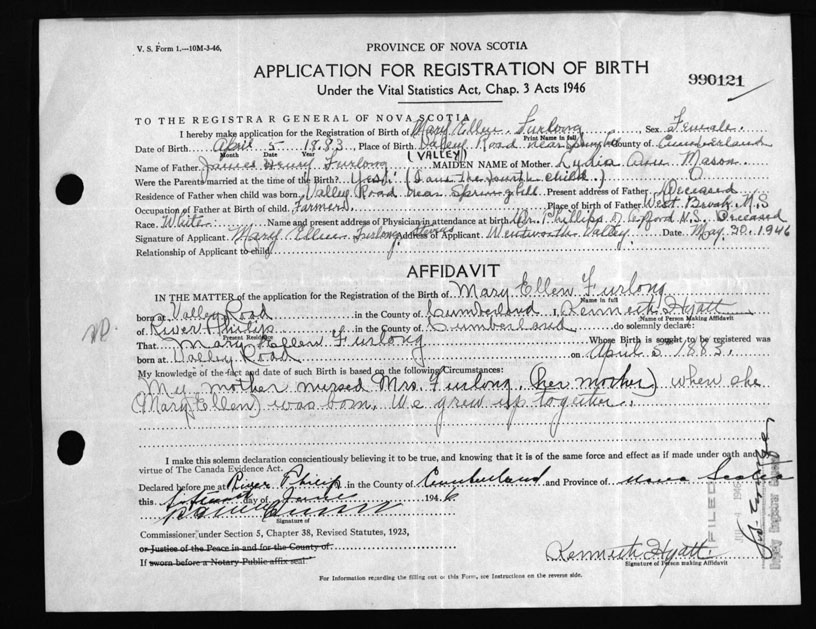 V. S. Form 1.—10M-3-46,
PROVINCE OF NOVA SCOTIA
APPLICATION FOR REGISTRATION OF BIRTH
Under the Vital Statistics Act, Chap. 3 Acts 1946
990121
TO THE REGISTRAR GENERAL OF NOVA SCOTIA
I hereby make application for the Registration of Birth of Mary Ellen Furlong Sex Female
Print Name in full
Date of Birth April 5 1883 Place of Birth Valley Road near Springhill County of Cumberland
Month Date Year
(VALLEY)
Name of Father James Henry Furlong MAIDEN NAME of Mother Lydia Ann Mason
Were the Parents married at the time of the Birth? Yes. (I am the fourth child.)
Residence of Father when child was born Valley Road near Springhill Present address of Father Deceased
Occupation of Father at Birth of child Farmer Place of birth of Father West Brook N.S
Race White Name and present address of Physician in attendance at birth Dr. Phillips Deceased
Signature of Applicant Mary Ellen Furlong Address of Applicant Wentworth Valley Date May 30, 1946
Relationship of Applicant to child
AFFIDAVIT
IN THE MATTER of the application for the Registration of the Birth of Mary Ellen Furlong
Name in full
born at Valley Road in the County of Cumberland, I, Kenneth Hyatt
Name of Person Making Affidavit
of River Philip in the County of Cumberland do solemnly declare:
Present Residence
That Mary Ellen Furlong Whose Birth is sought to be registered was
born at Valley Road on April 5 1883.
My knowledge of the fact and date of such Birth is based on the following Circumstances:
My mother nursed Mrs. Furlong, (her mother) when she
(Mary Ellen) was born. We grew up together.
I make this solemn declaration conscientiously believing it to be true, and knowing that it is of the same force and effect as if made under oath and
virtue of The Canada Evidence Act.
Declared before me at River Philip in the County of Cumberland and Province of Nova Scotia
this day of June 1946
Signature of
Commissioner under Section 5, Chapter 38, Revised Statutes, 1923,
or Justice of the Peace in and for the County of
If sworn before a Notary Public affix seal
Kenneth Hyatt
Signature of Person making Affidavit
FILED
For Information regarding the filling out of this Form, see Instructions on the reverse side.